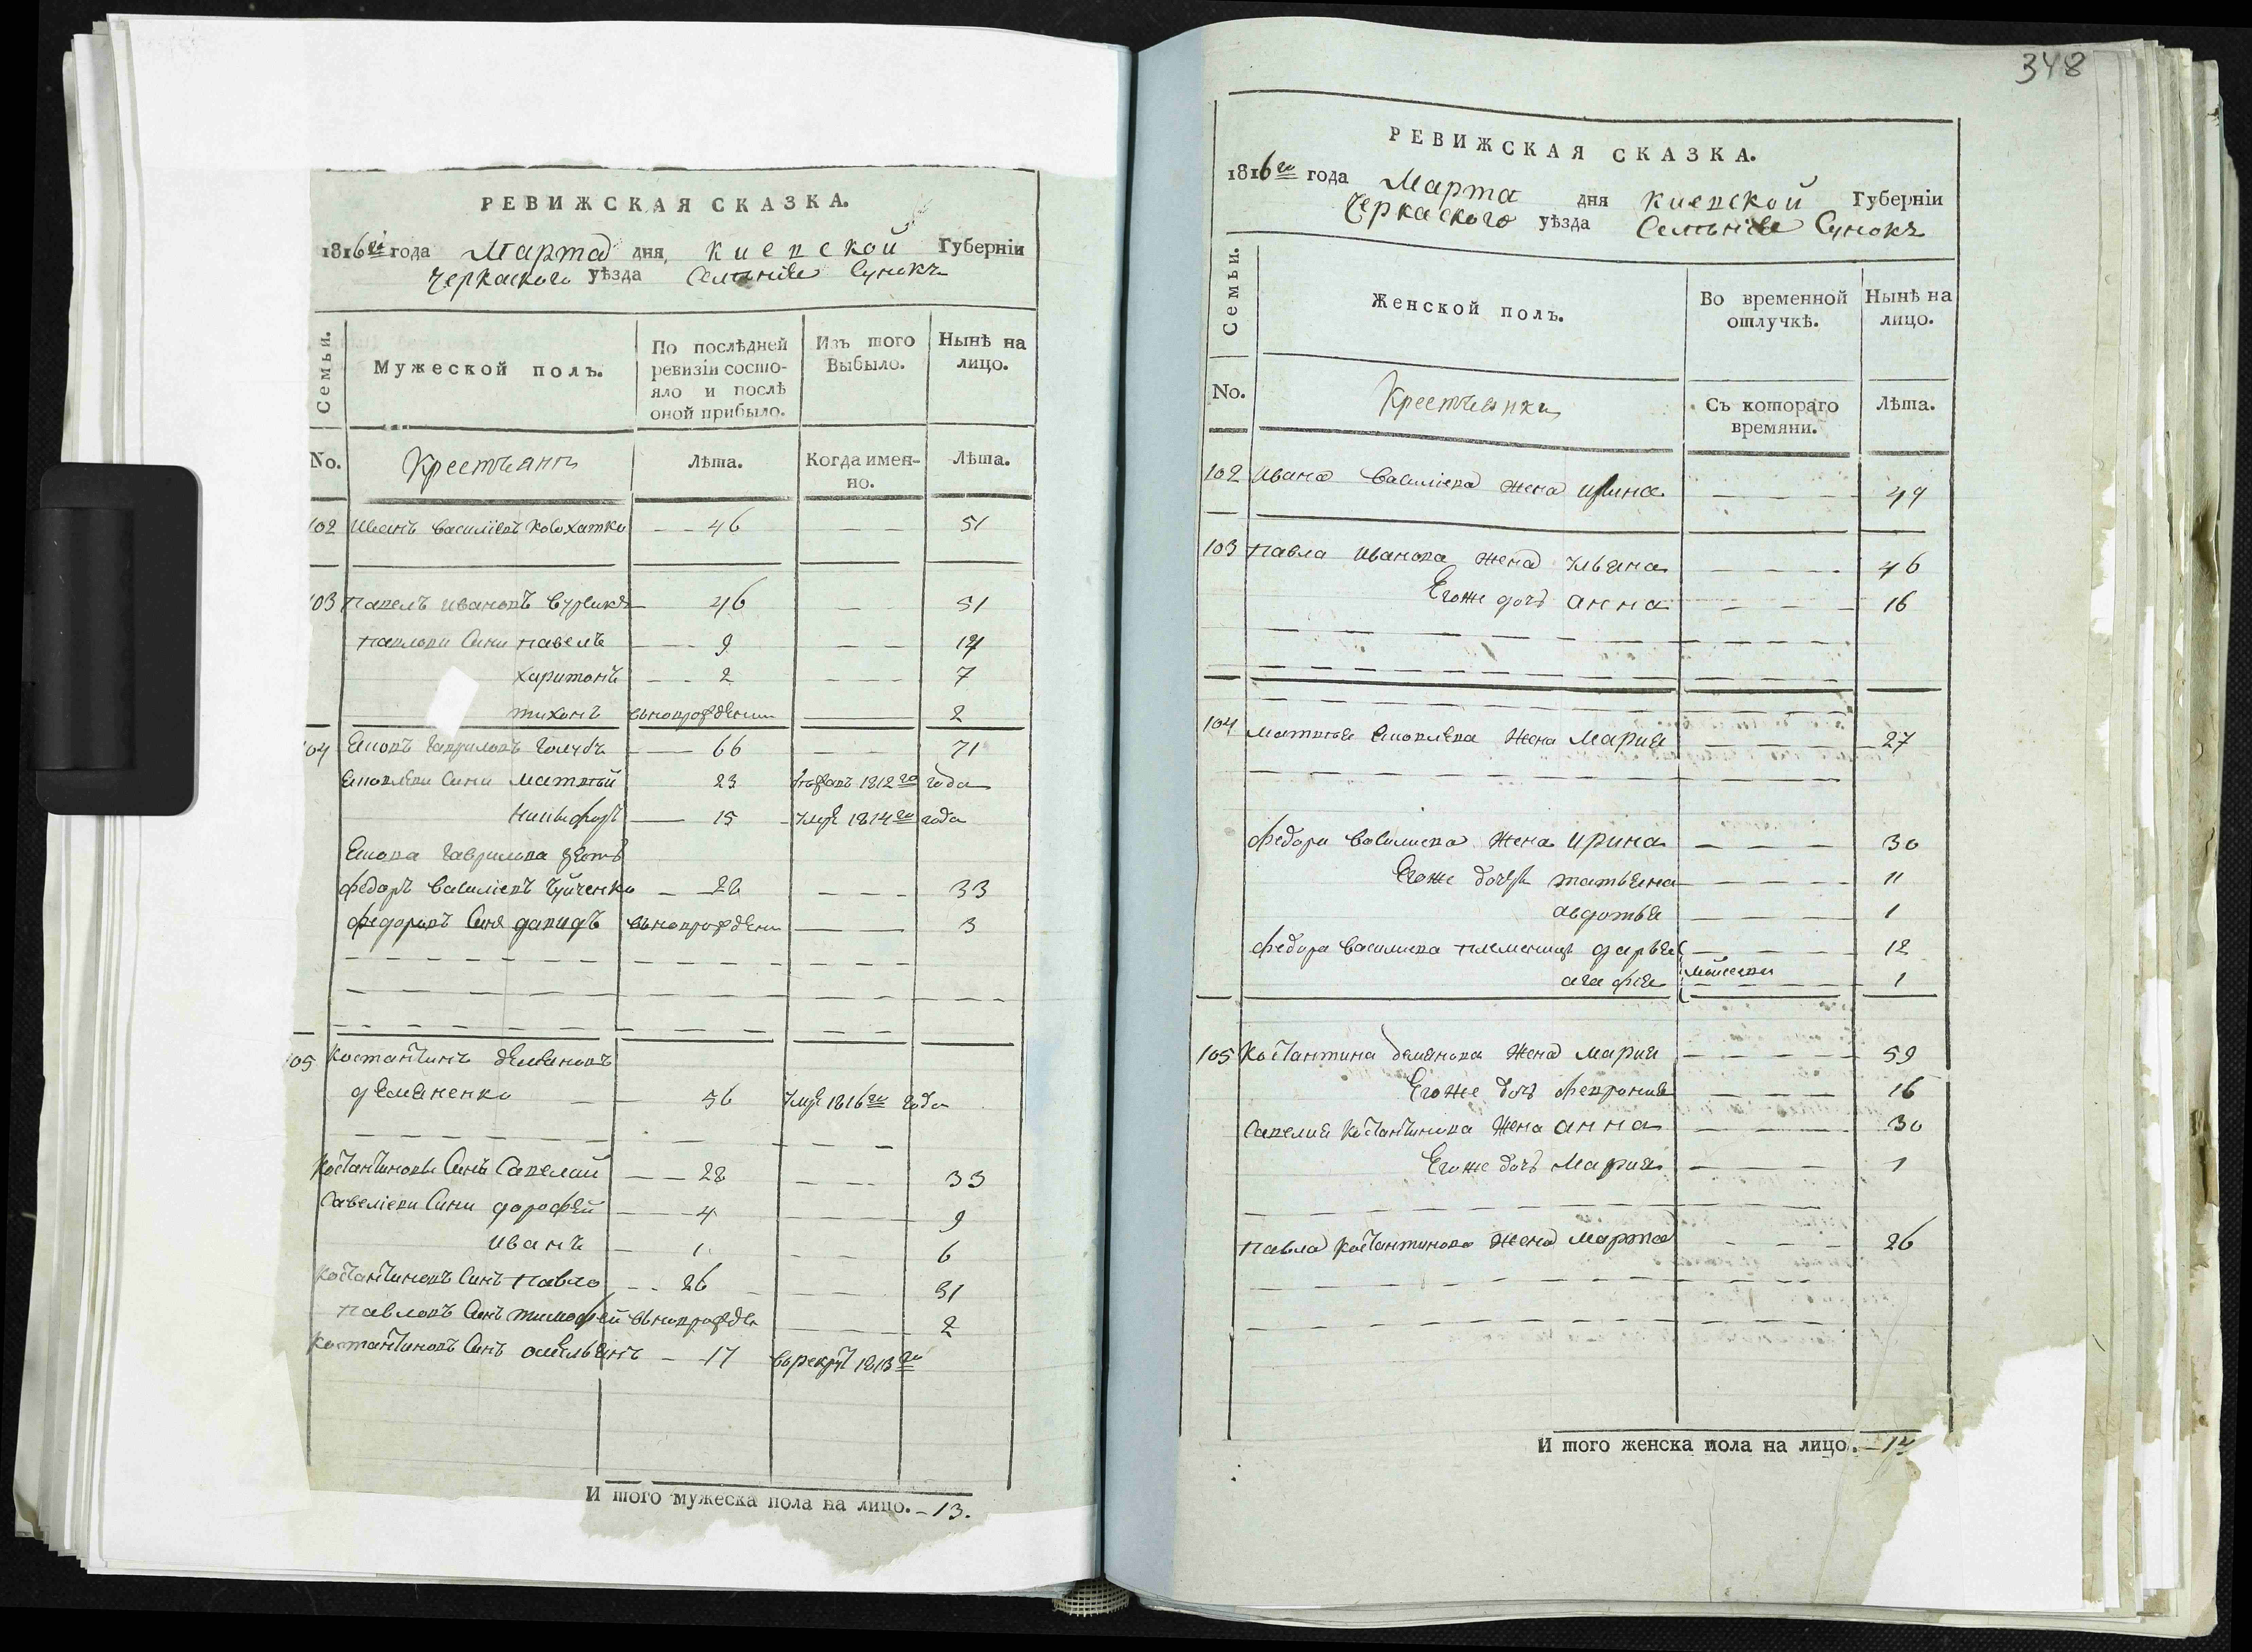 РЕВИЖСКАЯ СКАЗКА.
1816го года Марта дня, Киевской Губерніи
Черкаского уѣзда Селенія Сунокъ
Семьи.
Мужеской полъ.
По послѣдней ревизіи состояло и послѣ оной прибыло.
Изъ того Выбыло.
Нынѣ на лицо.
No. Крестьянъ Лѣта. Когда именно. Лѣта.
102 Иванъ Василіевъ 46 51
103 Павелъ Ивановъ 46 51
Павлови Сини Павелъ 9 14
Харитонъ 2 7
Тихонъ вьноворожденни 2
104 Яковъ Гавриловъ Голубъ 66 71
Яковлеви Сини Матвѣй 23 1812го года
Никифоръ 15 Умре 1814го года
Якова Гаврилова зять
Федоръ Василіевъ 28 33
Федоровъ Синъ Давидъ вьноворожден 3
105 Костантинъ Демяновъ
Демяненко 56 Умре 1816го года
Костантинови Сини Савелий 28 33
Савеліеви Сини Дорофей 4 9
Иванъ 1 6
Костантиновъ Синъ Павло 26 31
Павловъ Синъ Тимофей вьноворожде 2
Костантиновъ Синъ Омельянъ 17 Врекруты 1813го
И того мужеска пола на лицо. 13.
348
РЕВИЖСКАЯ СКАЗКА.
1816го года Марта дня Киевской Губерніи
Черкаского уѣзда Селенія Сунокъ
Семьи.
Женской полъ.
Во временной отлучкѣ.
Нынѣ на лицо.
No. Крестьянки Съ котораго времяни. Лѣта.
102 Ивана Василіева жена Ирина 49
103 Павла Иванова жена Ульяна 46
Егоже дочь Анна 16
104 Матвѣя Яковлева жена Мария 27
Федора Василиева жена Ирина 30
Егоже дочери Татьяна 11
Авдотья 1
Федора Василиева племеници Дарья 12
Агафія 1
105 Костантина Демянова жена Мария 59
Егоже дочь Феврония 16
Савелия Костантинова жена Анна 30
Егоже дочь Мария 1
Павла Костантинова жена Марта 26
И того женска пола на лицо. 12